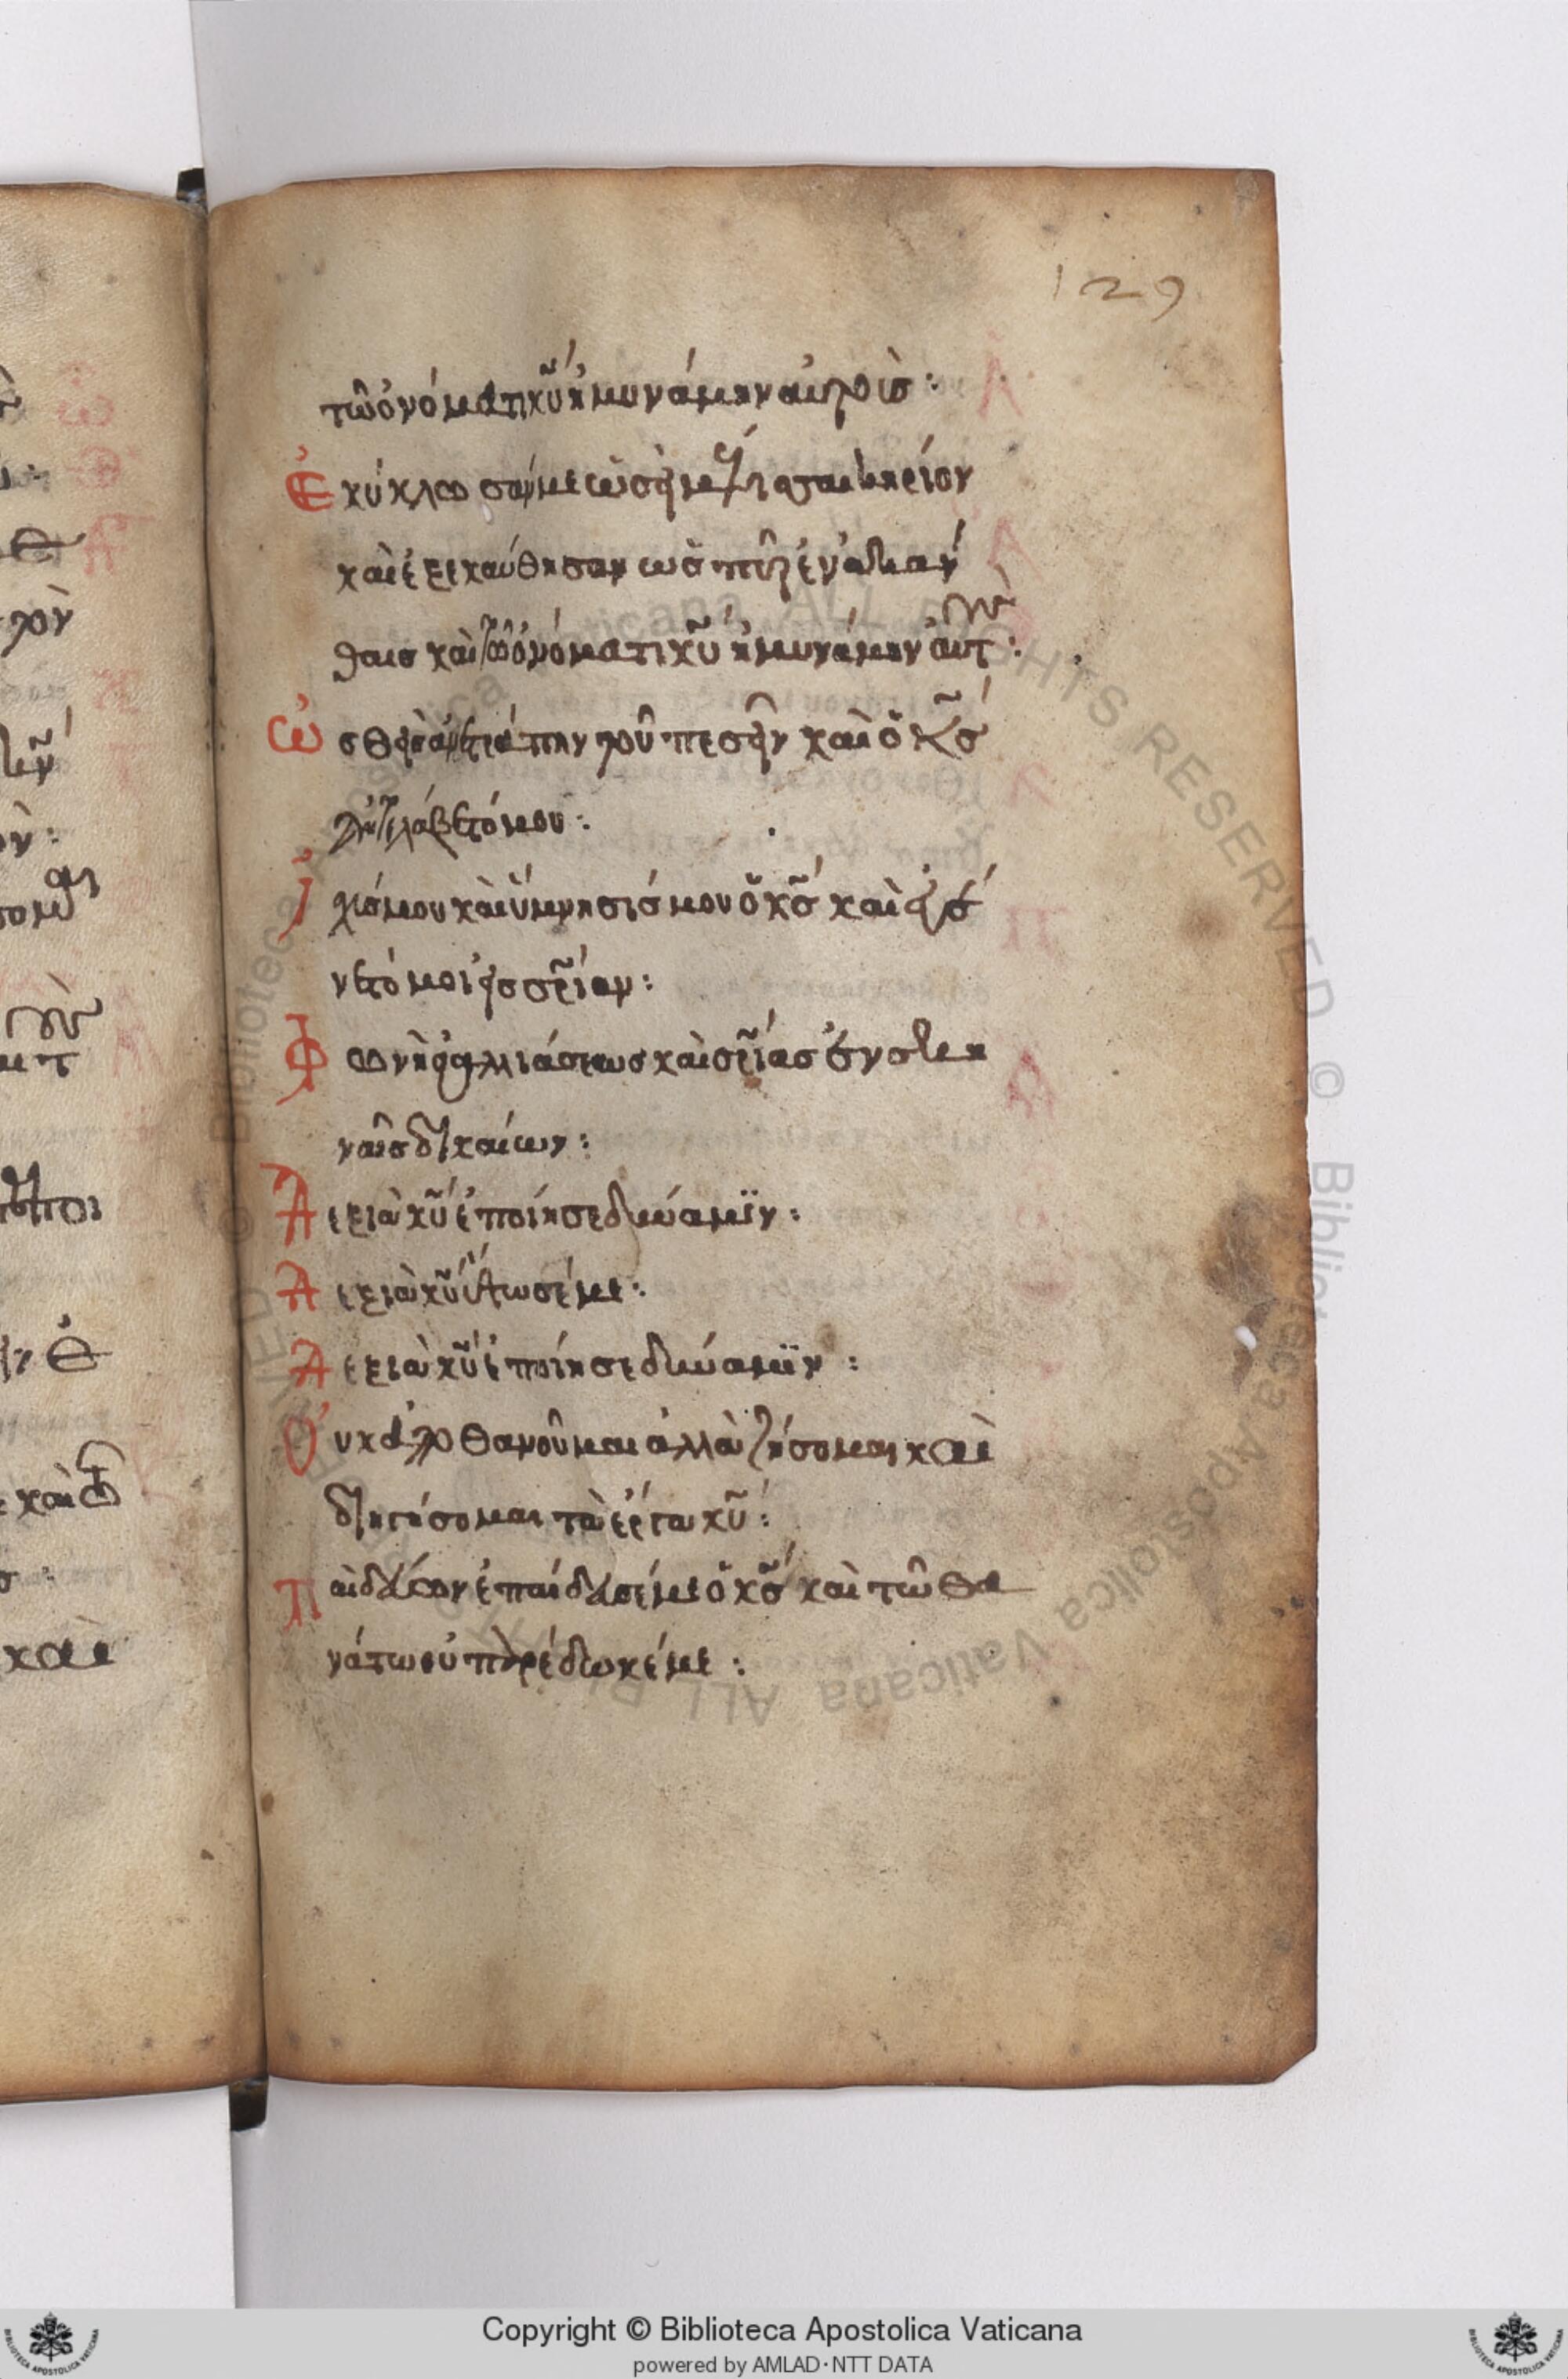 129
τῶ ὀνόματι κ̅υ̅ ἠμυνάμην αὐτοὺσ:
Ἐκύκλωσάν με ὡσεὶ μέλισσαι κηρίον
καὶ ἐξεκαύθησαν ὡς πῦρ ἐν ἀκάν
θαισ καὶ τῶ ὀνόματι κ̅υ̅ ἠμυνάμην αὐτοὺς:
Ὠσθεὶς ἀνετράπην τοῦ πεσεῖν καὶ ὁ κ̅σ̅
ἀντελάβετό μου:
Ἰσχύσ μου καὶ ὕμνησίσ μου ὁ κ̅σ̅ καὶ ἐγέ
νετό μοι εἰσ σ̅ρ̅ίαν:
Φωνὴ ἀγαλλιάσεωσ καὶ σ̅ρ̅ίασ ἐν σκη
ναῖσ δικαίων:
Δεξιὰ κ̅υ̅ ἐποίησε δύναμϊν:
Δεξιὰ κ̅υ̅ ὕψωσέ με:
Δεξιὰ κ̅υ̅ ἐποίησε δύναμϊν:
Οὐκ ἀποθανοῦμαι ἀλλὰ ζήσομαι καὶ
διηγήσομαι τὰ ἔργα κ̅υ̅:
Παιδεύων ἐπαίδευσέ με ὁ κ̅σ̅ καὶ τῶ θα
νάτω οὐ παρέδωκέ με:
Copyright © Biblioteca Apostolica Vaticana
powered by AMLAD·NTT DATA